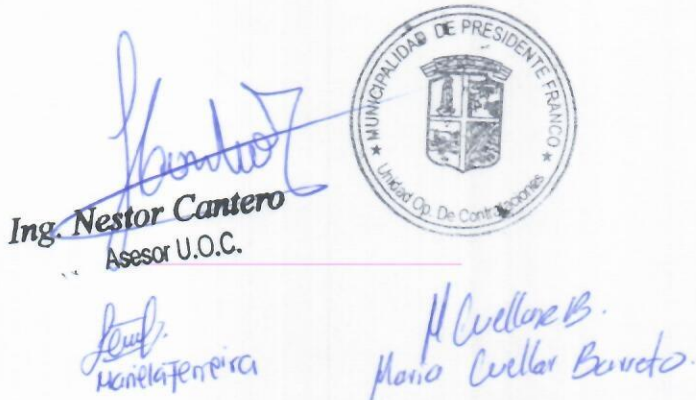 MUNICIPALIDAD DE PRESIDENTE FRANCO
Unidad Op. De Contrataciones
Ing. Nestor Cantero
Asesor U.O.C.
Mariela Ferreira
M Cuellar B.
Maria Cuellar Barreto.